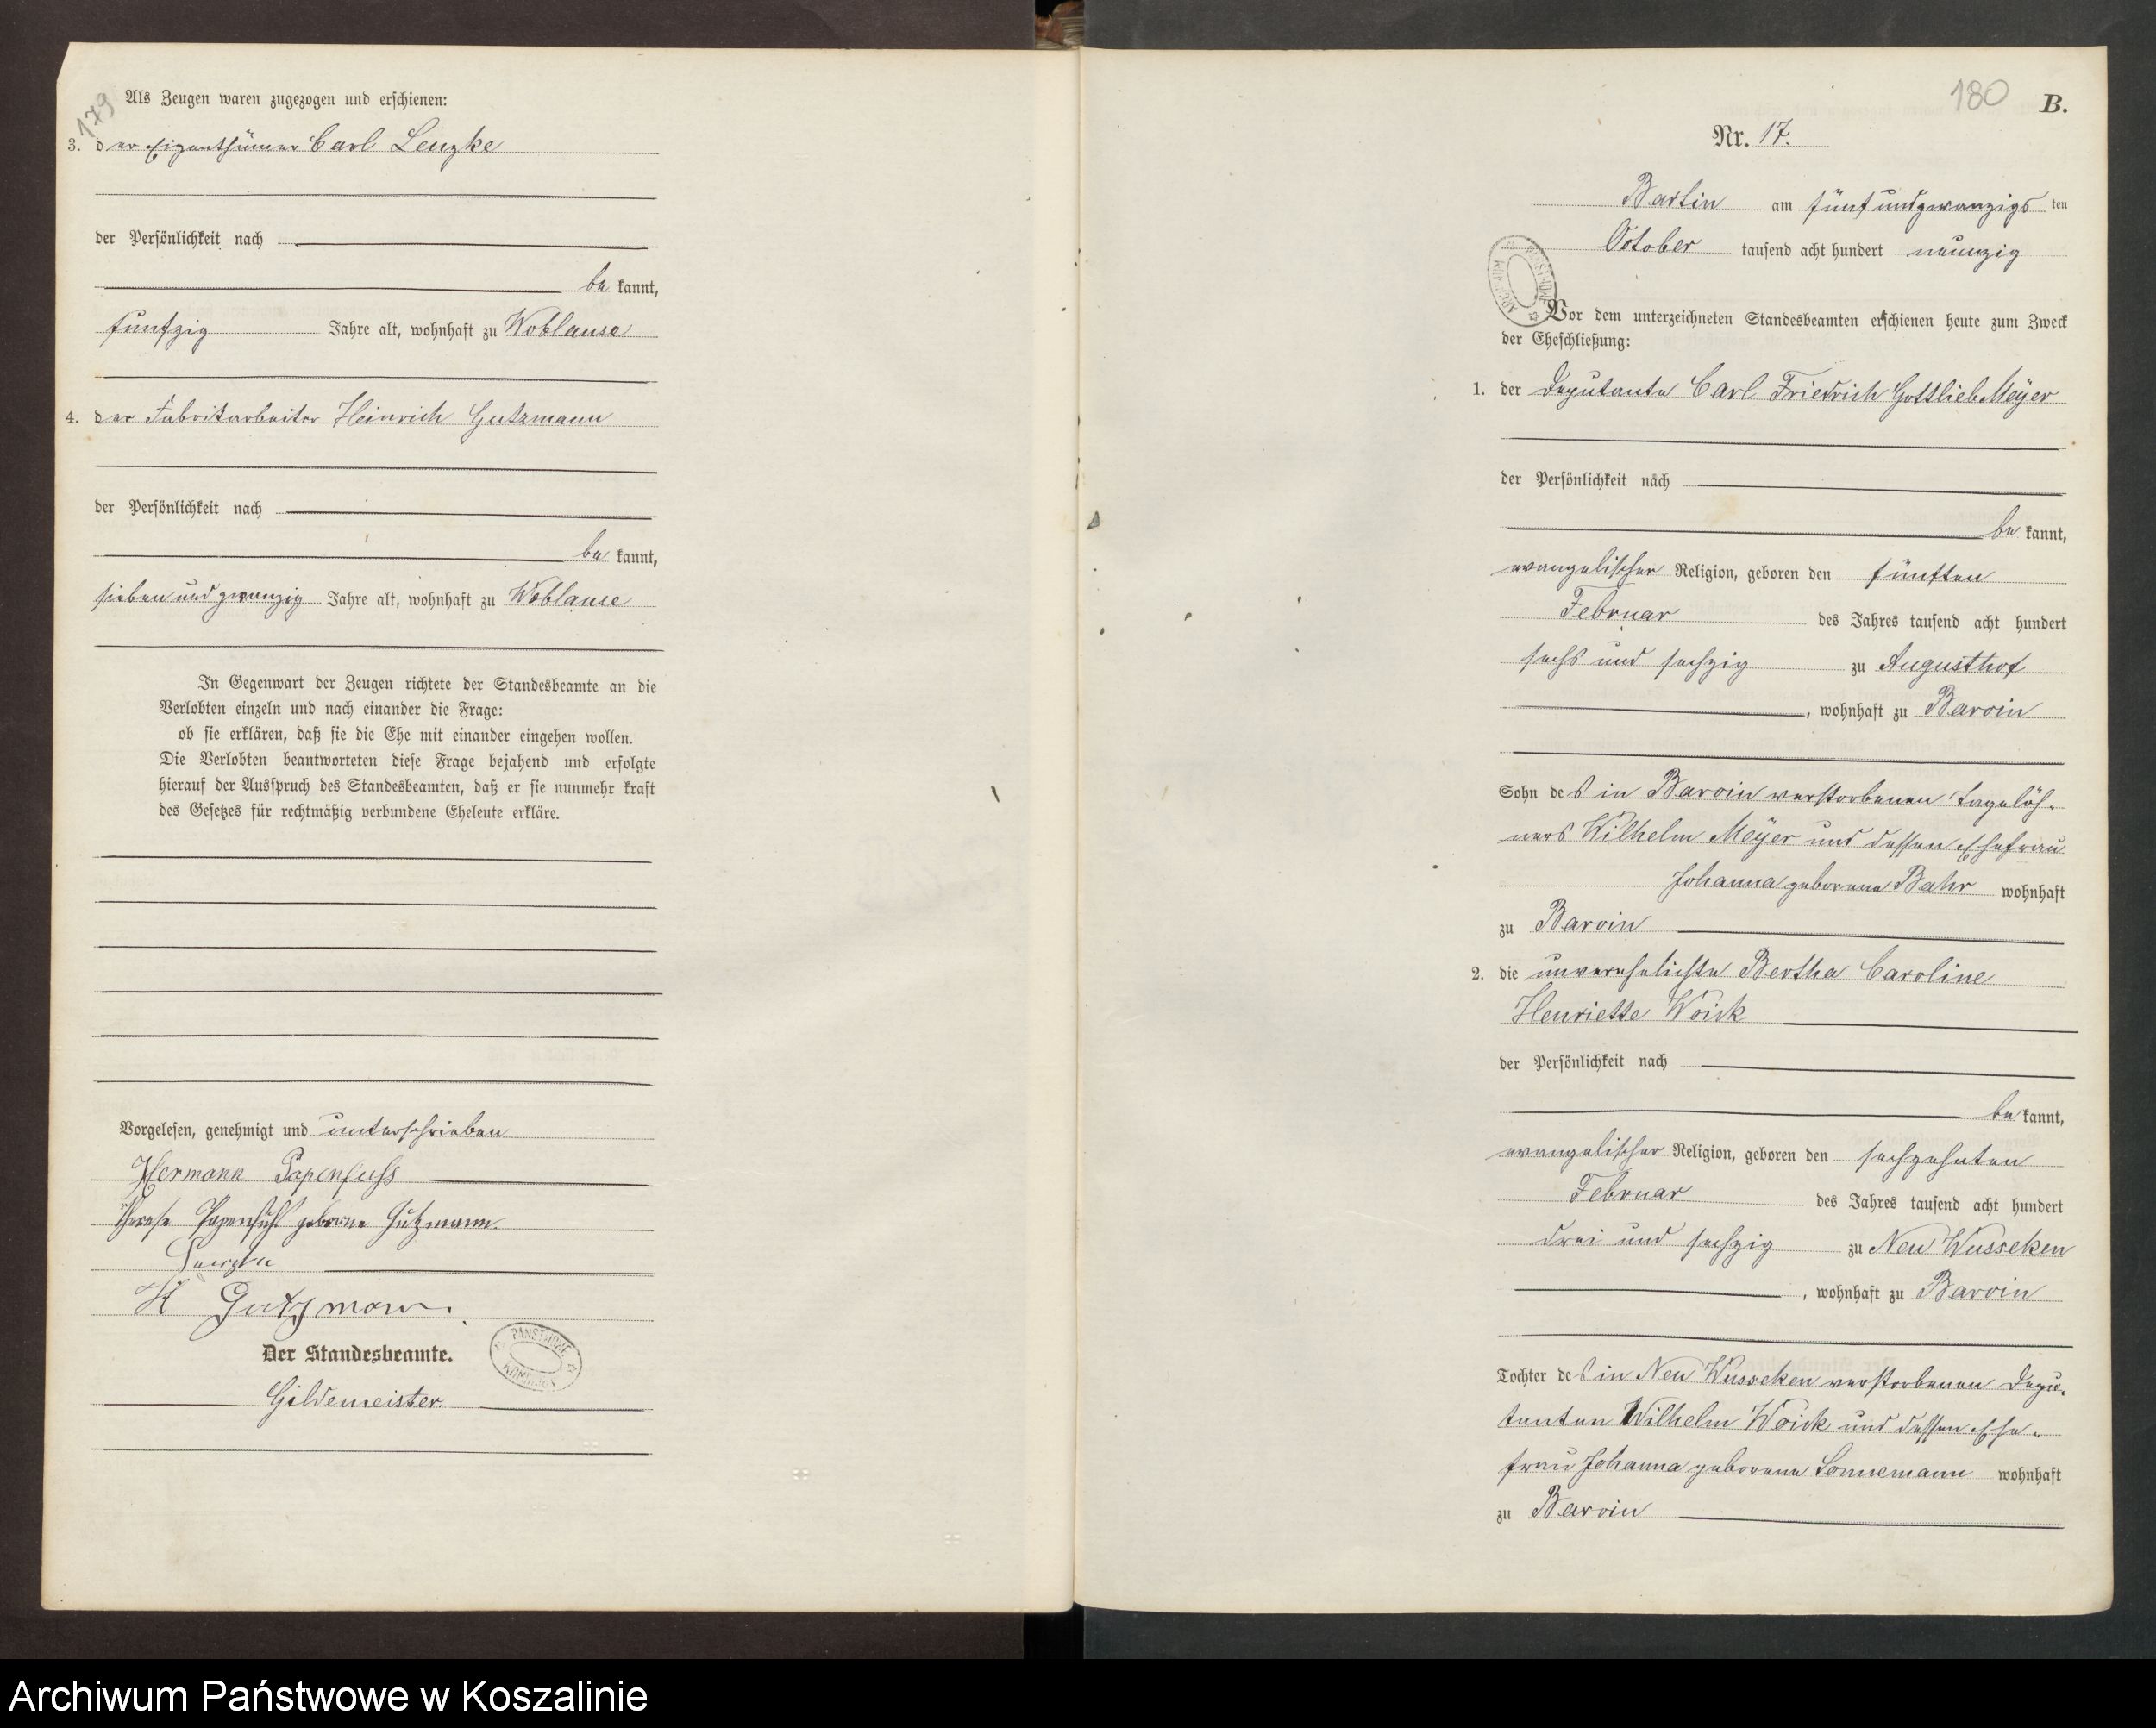 179
Als Zeugen waren zugezogen und erschienen:
3. der Eigenthümer Carl Lenzke
der Persönlichkeit nach
be kannt,
funfzig Jahre alt, wohnhaft zu Woblanse
4. der Fabrikarbeiter Heinrich Gutzmann
der Persönlichkeit nach
be kannt,
sieben und zwanzig Jahre alt, wohnhaft zu Woblanse
In Gegenwart der Zeugen richtete der Standesbeamte an die
Verlobten einzeln und nach einander die Frage:
ob sie erklären, daß sie die Ehe mit einander eingehen wollen.
Die Verlobten beantworteten diese Frage bejahend und erfolgte
hierauf der Ausspruch des Standesbeamten, daß er sie nunmehr kraft
des Gesetzes für rechtmäßig verbundene Eheleute erkläre.
Vorgelesen, genehmigt und unterschrieben
Hermann Papenfuss
Therese Papenfuhs geborne Gutzmann.
Lenzke
H Gutzmann.
Der Standesbeamte.
Gildemeister.
180
B.
Nr. 17.
Bartin am fünfundzwanzigs ten
October tausend acht hundert neunzig
Vor dem unterzeichneten Standesbeamten erschienen heute zum Zweck
der Eheschließung:
1. der Deputante Carl Friedrich Gottlieb Meÿer
der Persönlichkeit nach
be kannt,
evangelischer Religion, geboren den fünften
Februar des Jahres tausend acht hundert
sechs und sechzig zu Augusthof
, wohnhaft zu Barvin
Sohn des in Barvin verstorbenen Tagelöh-
ners Wilhelm Meÿer und dessen Ehefrau
Johanna geborene Bahr wohnhaft
zu Barvin
2. die unverehelichte Bertha Caroline
Henriette Woick
der Persönlichkeit nach
be kannt,
evangelischer Religion, geboren den sechzehnten
Februar des Jahres tausend acht hundert
drei und sechzig zu Neu Wusseken
, wohnhaft zu Barvin
Tochter des in Neu Wusseken verstorbenen Depu-
tanten Wilhelm Woick und dessen Ehe-
frau Johanna geborene Sonnemann wohnhaft
zu Barvin
Archiwum Państwowe w Koszalinie